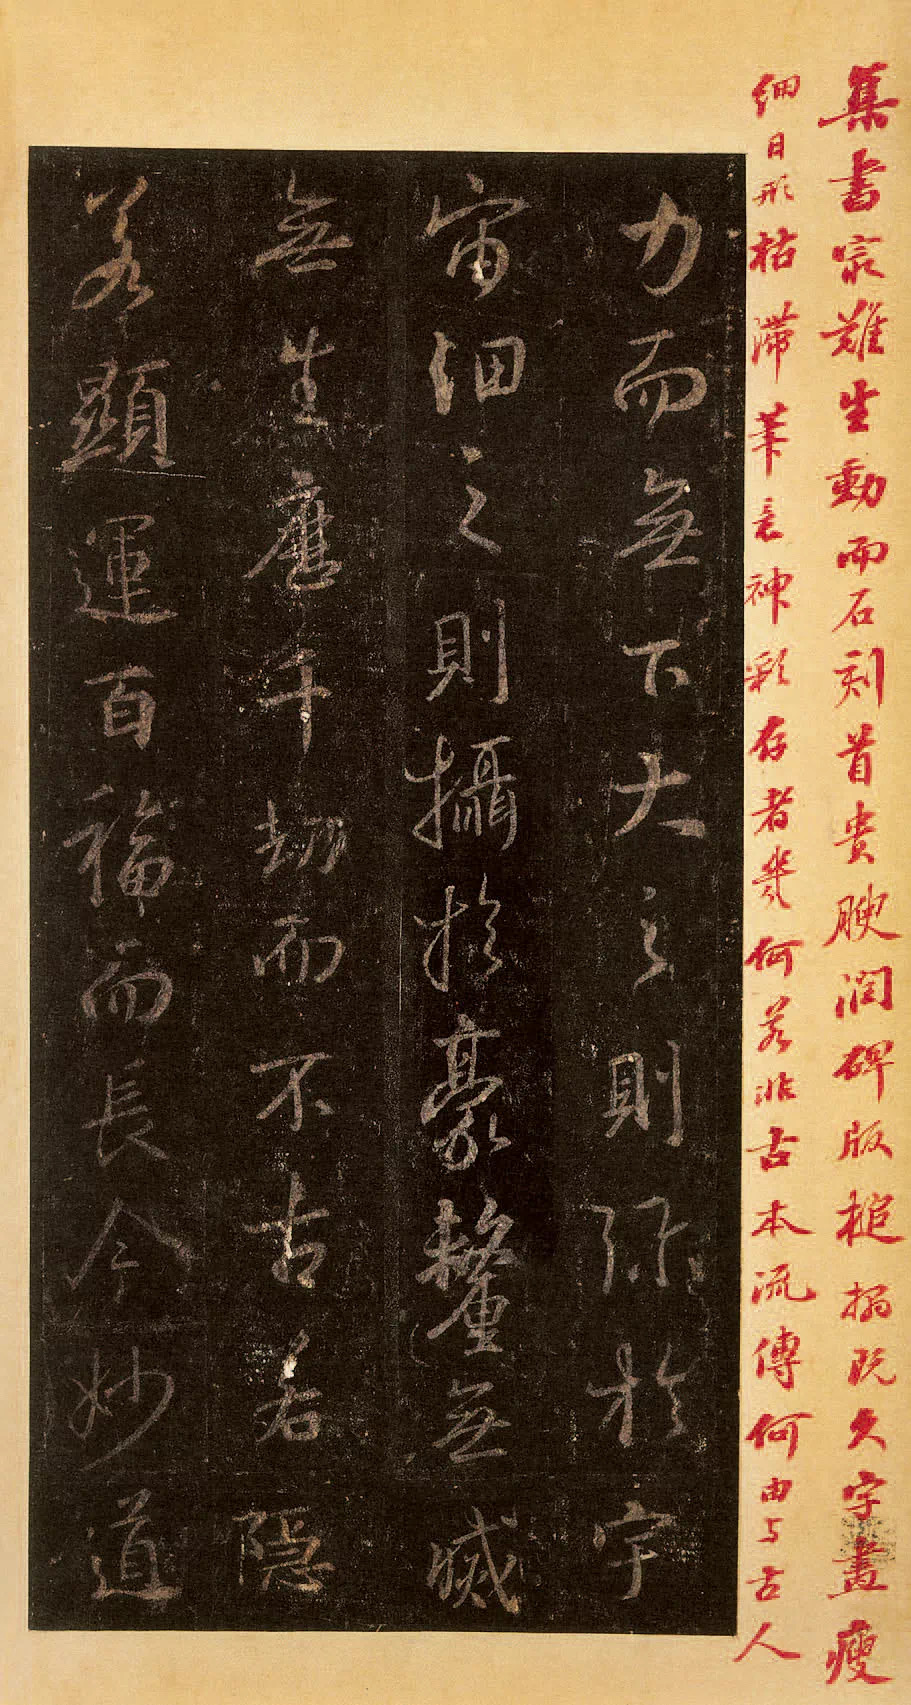 集書最難生動而石刻首貴腴潤碑版槌搨既久字畫瘦
細日形枯滯筆意神彩存者幾何若非古本流傳何由与古人
力而無下大之則彌於宇
宙細之則攝於豪釐無滅
無生歷千劫而不古若隱
若顯運百福而長今妙道